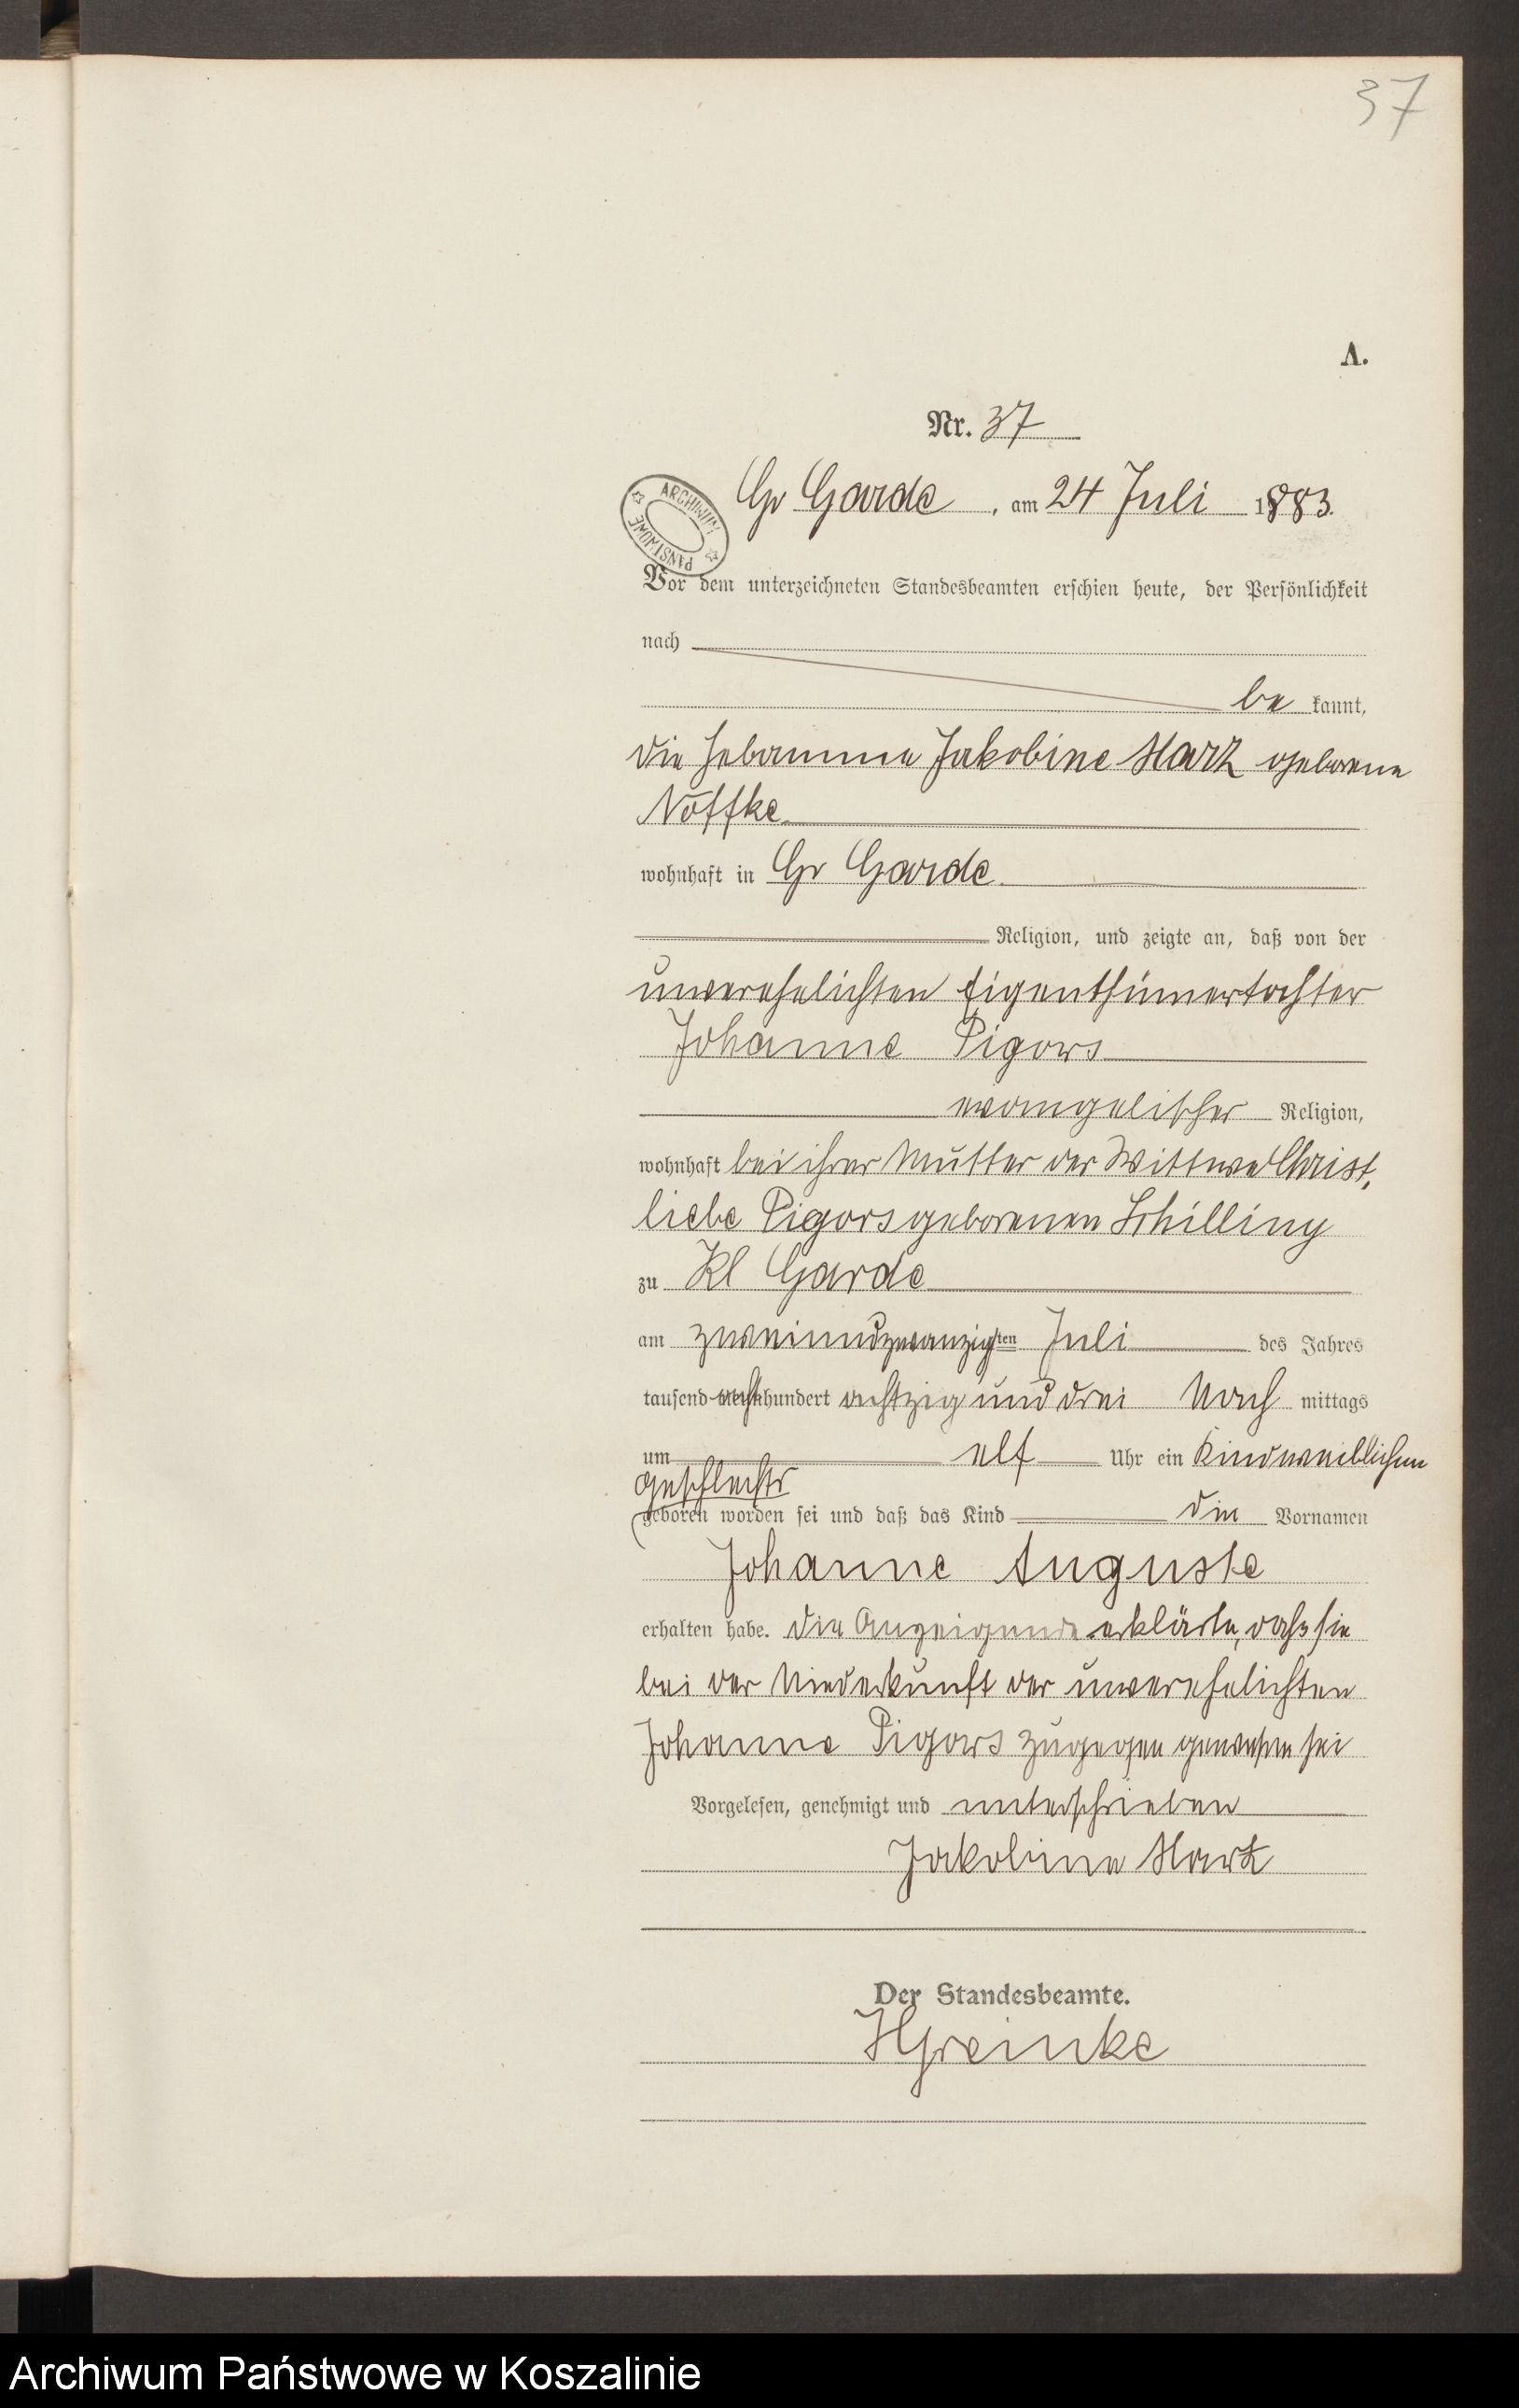 37
A.
Nr. 37
Gr Garde, am 24 Juli 1883.
ARCHIWUM PAŃSTWOWE
Vor dem unterzeichneten Standesbeamten erschien heute, der Persönlichkeit
nach
be kannt,
die Hebamme Jakobine Harz geborene
Noffke
wohnhaft in Gr Garde
Religion, und zeigte an, daß von der
unverehelichten Eigenthümertochter
Johanne Pigors
evangelischer Religion,
wohnhaft bei ihrer Mutter der Wittwe Christ,
liebe Pigors geborenen Schilling
zu Kl Garde
am zweiundzwanzigsten Juli des Jahres
tausend achthundert achtzig und drei Nach mittags
um elf Uhr ein Kind weiblichen
Geschlechts
geboren worden sei und daß das Kind die Vornamen
Johanne Auguste
erhalten habe. Die Anzeigende erklärte, dass sie
bei der Niederkunft der unverehelichten
Johanne Pigors zugegen gewesen sei
Vorgelesen, genehmigt und unterschrieben
Jakobine Harz
Der Standesbeamte.
HGreinke
Archiwum Państwowe w Koszalinie